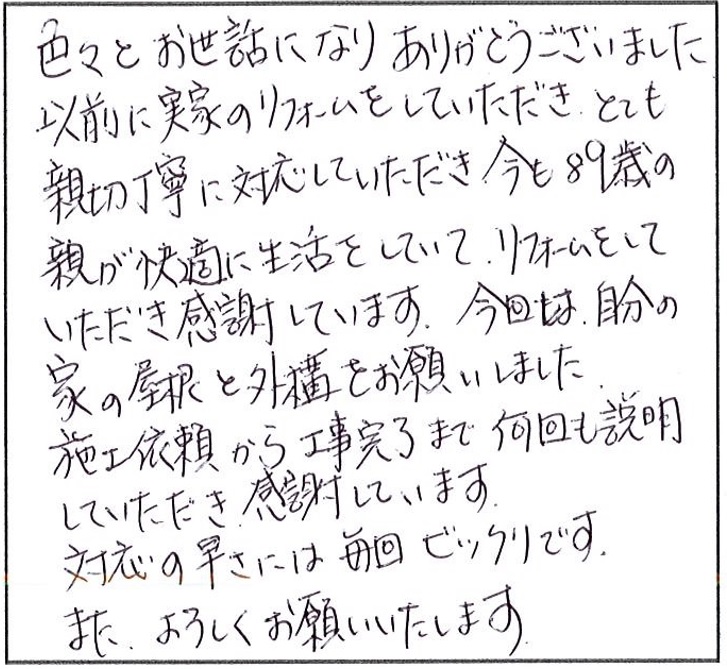 色々とお世話になりありがとうございました
以前に実家のリフォームをしていただき、とても
親切丁寧に対応していただき、今も89歳の
親が快適に生活をしていて、リフォームをして
いただき感謝しています。今回は、自分の
家の屋根と外構をお願いしました。
施工依頼から工事完了まで何回も説明
していただき、感謝しています。
対応の早さには毎回ビックリです。
また、よろしくお願いいたします。